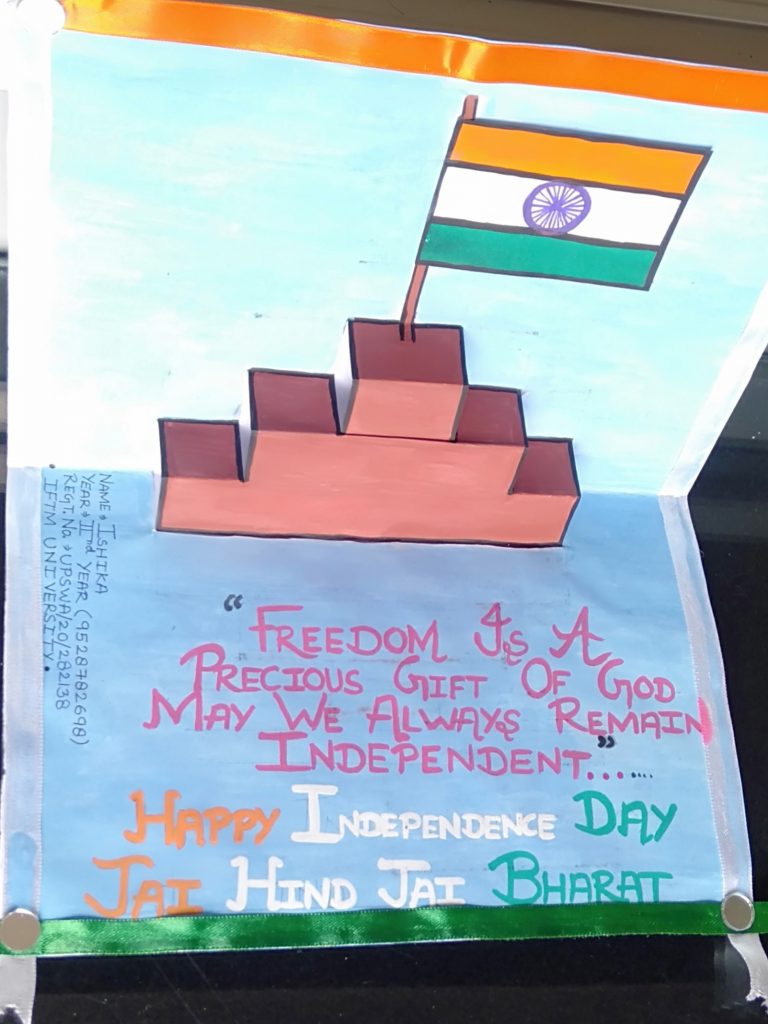 NAME: ISHIKA
YEAR: IInd YEAR (9528782698)
REGT. No: UPSWA/20/282138
IFTM UNIVERSITY.
“FREEDOM IS A
PRECIOUS GIFT OF GOD
MAY WE ALWAYS REMAIN
INDEPENDENT.......”
HAPPY INDEPENDENCE DAY
JAI HIND JAI BHARAT